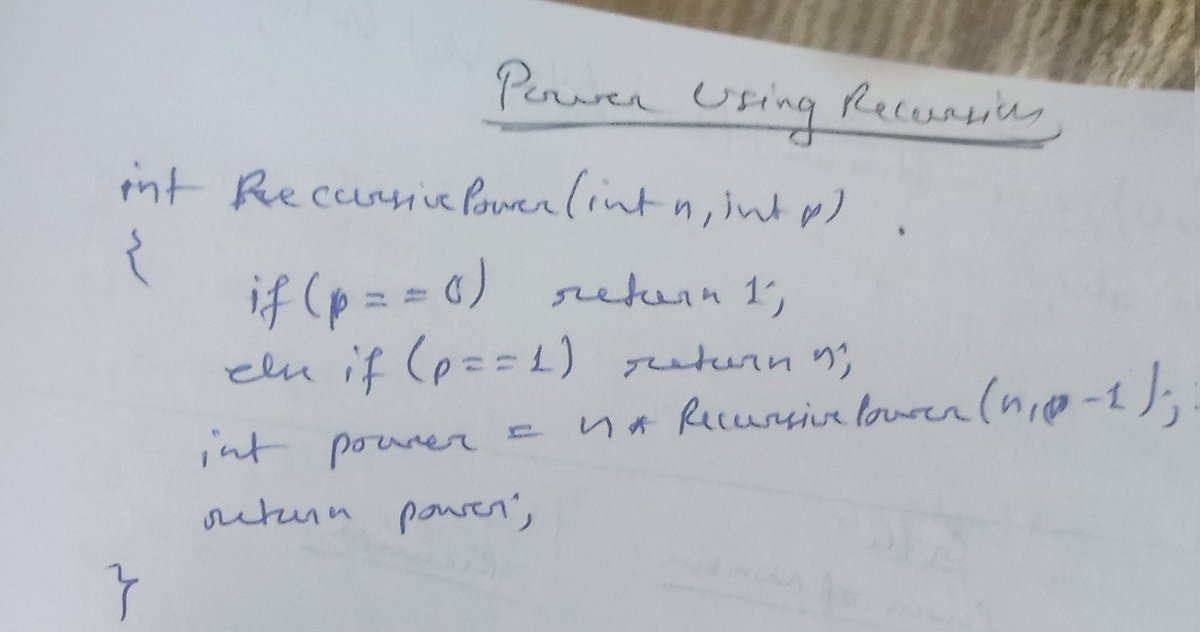 Power Using Recursion
int RecursivePower(int n, int p)
{
if(p==0) return 1;
else if(p==1) return n;
int power = n * RecursivePower(n,p-1);
return power;
}